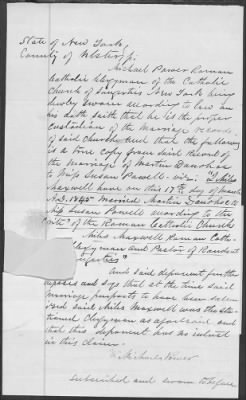 State of New York,
County of Ulster, ss.
Michael Power Roman
Catholic Clergyman of the Catholic
Church of Saugerties New York being
duly sworn according to law on
his oath saith that he is the proper
custodian of the Marriage records
of said Church and that the following
is a true copy from said record of
the marriage of Martin Donohoe
to Miss Susan Powell viz: "I Miles
Maxwell have on this 17th day of March
A.D. 1845 Married Martin Donohoe to
Miss Susan Powell according to the
of the Roman Catholic Church
Miles Maxwell Roman Cath.
Clergyman and Pastor of Rondout
Saugerties"
And said deponent further
deposes and says that at the time said
marriage purports to have been solem
nized said Miles Maxwell was the sta
tioned Clergyman as aforesaid and
that this deponent has no interest
in this claim.
Michael Power
Subscribed and sworn to before